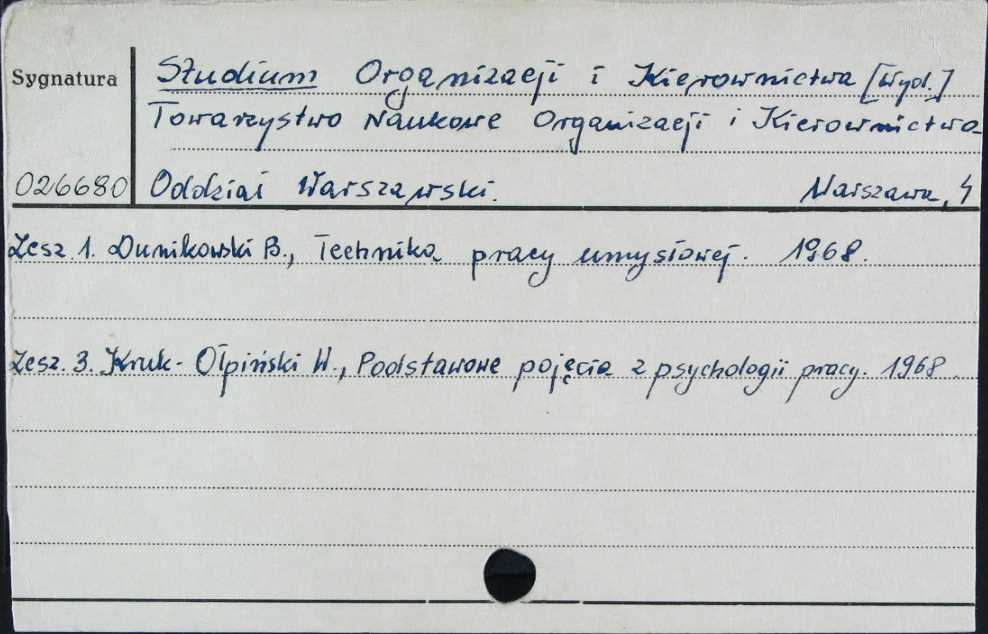 Sygnatura
Studium Organizacji i Kierownictwa [Wyd.]
Towarzystwo Naukowe Organizacji i Kierownictwa
026680 Oddział Warszawski. Warszawa, 4
Zesz. 1. Dunikowski B., Technika pracy umysłowej. 1968.
Zesz. 3. Kruk-Ołpiński W., Podstawowe pojęcia z psychologii pracy. 1968.